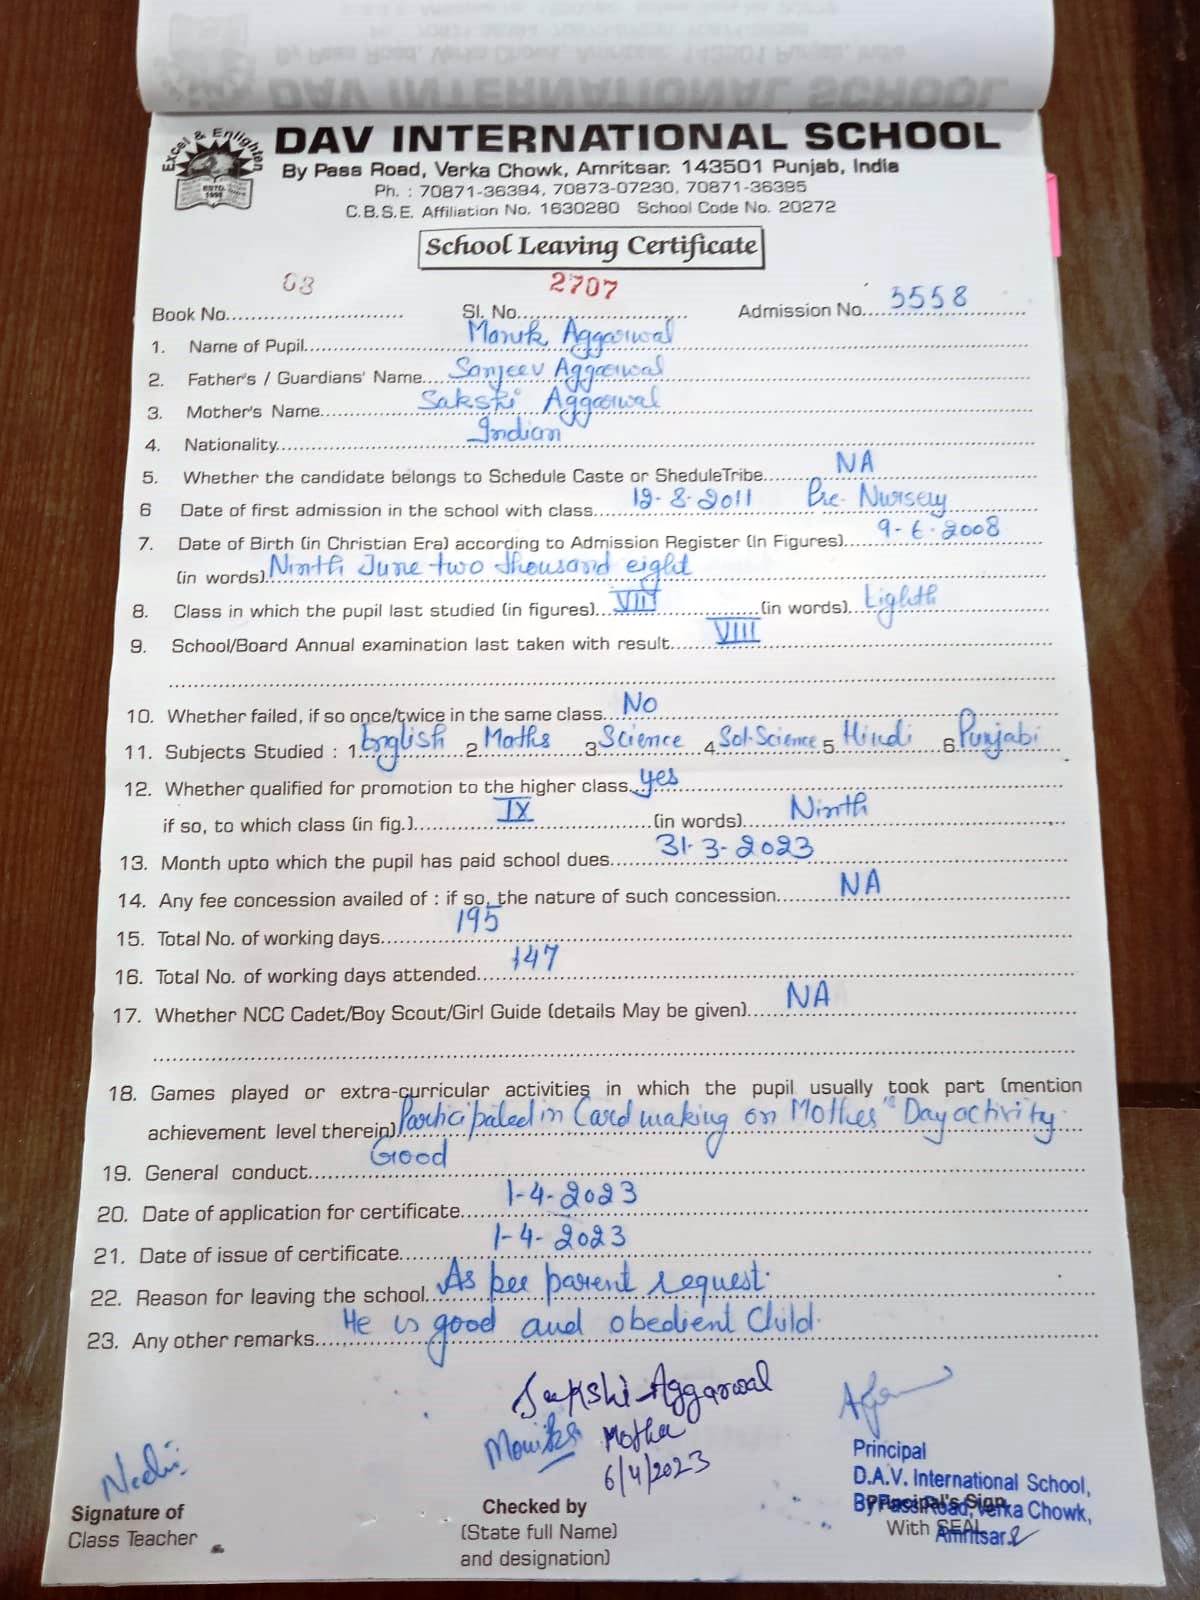 Excel & Enlighten
ESTD. 1998
DAV INTERNATIONAL SCHOOL
By Pass Road, Verka Chowk, Amritsar. 143501 Punjab, India
Ph. : 70871-36394, 70873-07230, 70871-36395
C.B.S.E. Affiliation No. 1630280 School Code No. 20272
School Leaving Certificate
Book No. 03 Sl. No. 2707 Admission No. 5558
1. Name of Pupil Aggarwal
2. Father's / Guardians' Name Sanjeev Aggarwal
3. Mother's Name Sakshi Aggarwal
4. Nationality Indian
5. Whether the candidate belongs to Schedule Caste or SheduleTribe NA
6 Date of first admission in the school with class 12-8-2011 Pre-Nursery
7. Date of Birth (in Christian Era) according to Admission Register (In Figures) 9-6-2008
(in words) Ninth June two thousand eight
8. Class in which the pupil last studied (in figures) VIII (in words) Eighth
9. School/Board Annual examination last taken with result VIII
10. Whether failed, if so once/twice in the same class No
11. Subjects Studied : 1 English 2 Maths 3 Science 4 Sol. Science 5 Hindi 6 Punjabi
12. Whether qualified for promotion to the higher class yes
if so, to which class (in fig.) IX (in words) Ninth
13. Month upto which the pupil has paid school dues 31-3-2023
14. Any fee concession availed of : if so, the nature of such concession NA
15. Total No. of working days 195
16. Total No. of working days attended 147
17. Whether NCC Cadet/Boy Scout/Girl Guide (details May be given) NA
18. Games played or extra-curricular activities in which the pupil usually took part (mention
achievement level therein) Participated in Card making on Mother's Day activity.
19. General conduct Good
20. Date of application for certificate 1-4-2023
21. Date of issue of certificate 1-4-2023
22. Reason for leaving the school As per parent request.
23. Any other remarks He is good and obedient Child.
Sakshi Aggarwal
Mother
6/4/2023
Signature of
Class Teacher
Checked by
(State full Name)
and designation)
Principal
D.A.V. International School,
By Pass Road, Verka Chowk,
Amritsar.
Principal's Sign
With SEAL